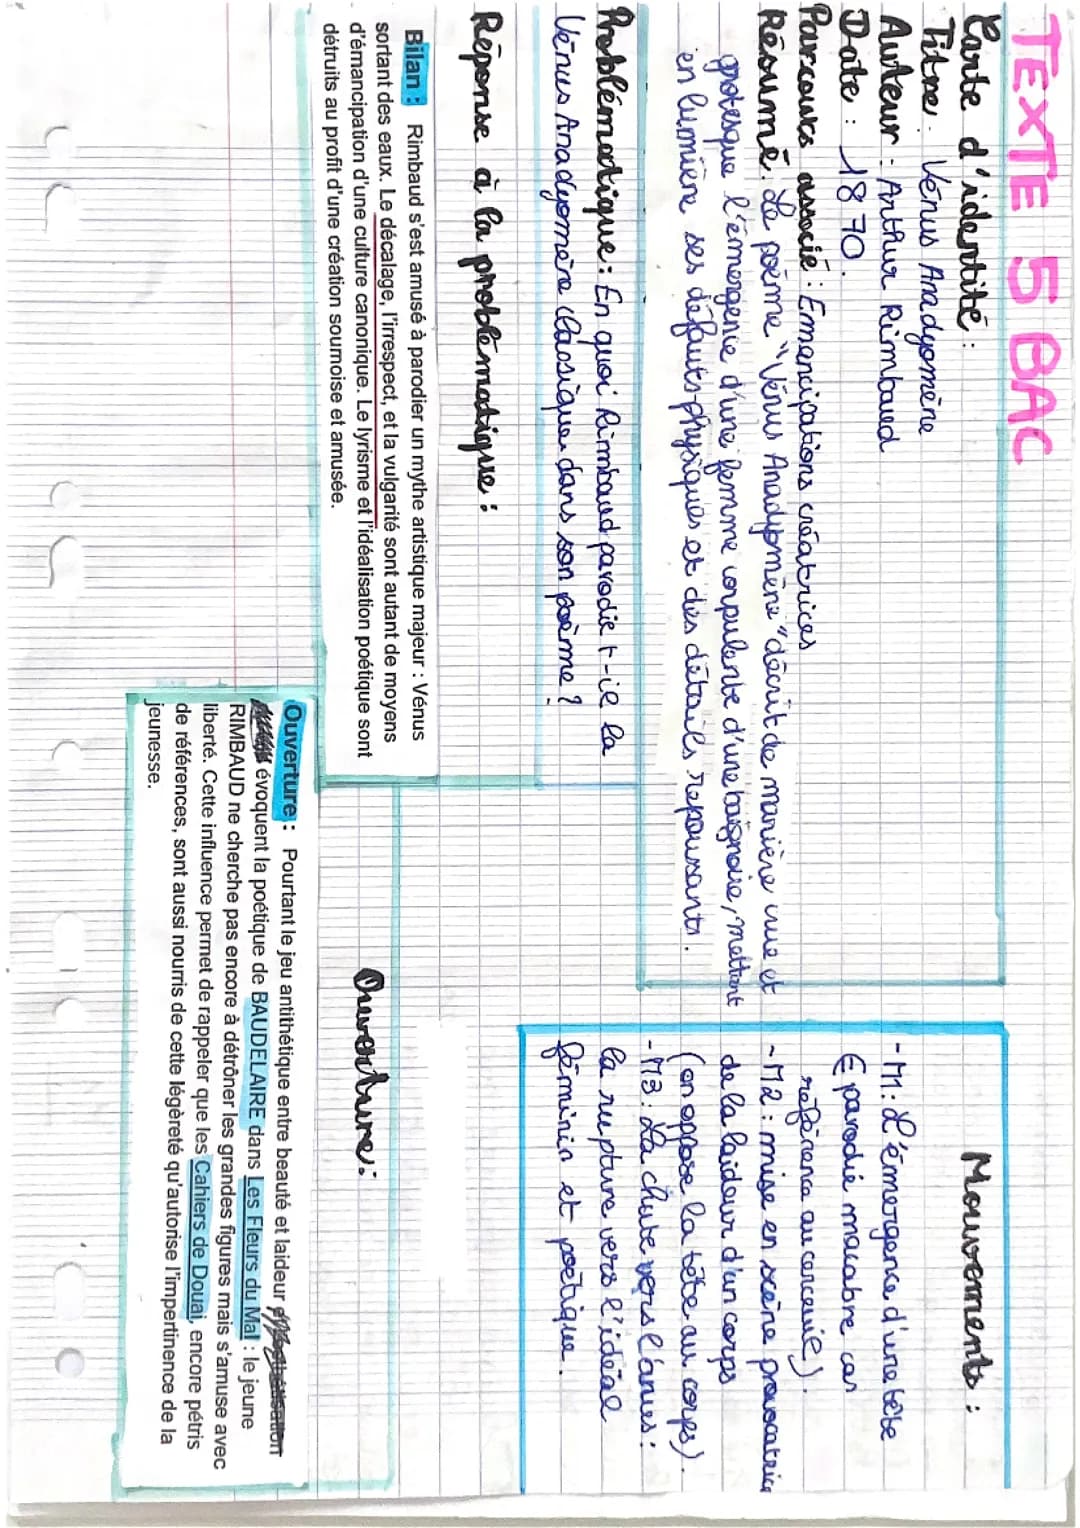 TEXTE 5 BAC
Carte d'identité :
Titre : Vénus Anadyomène
Auteur : Arthur Rimbaud
Date : 1870.
Parcours associé : Emancipations créatrices
Résumé : Le poème "Vénus Anadyomène" décrit de manière crue et
grotesque l'émergence d'une femme corpulente d'une baignoire, mettant
en lumière ses défauts physiques et des détails repoussants.
Problématique : En quoi Rimbaud parodie t-il la
Vénus Anadyomène classique dans son poème ?
Réponse à la problématique :
Bilan : Rimbaud s'est amusé à parodier un mythe artistique majeur : Vénus
sortant des eaux. Le décalage, l'irrespect, et la vulgarité sont autant de moyens
d'émancipation d'une culture canonique. Le lyrisme et l'idéalisation poétique sont
détruits au profit d'une création sournoise et amusée.
Mouvements :
- M1 : L'émergence d'une tête
(parodie macabre car
référence au cercueil).
- M2 : mise en scène provocatrice
de la laideur d'un corps
(on oppose la tête au corps).
- M3 : La chute vers l'anus :
la rupture vers l'idéal
féminin et poétique.
Ouverture :
Ouverture : Pourtant le jeu antithétique entre beauté et laideur
évoquent la poétique de BAUDELAIRE dans Les Fleurs du Mal : le jeune
RIMBAUD ne cherche pas encore à détrôner les grandes figures mais s'amuse avec
liberté. Cette influence permet de rappeler que les Cahiers de Douai, encore pétris
de références, sont aussi nourris de cette légèreté qu'autorise l'impertinence de la
jeunesse.